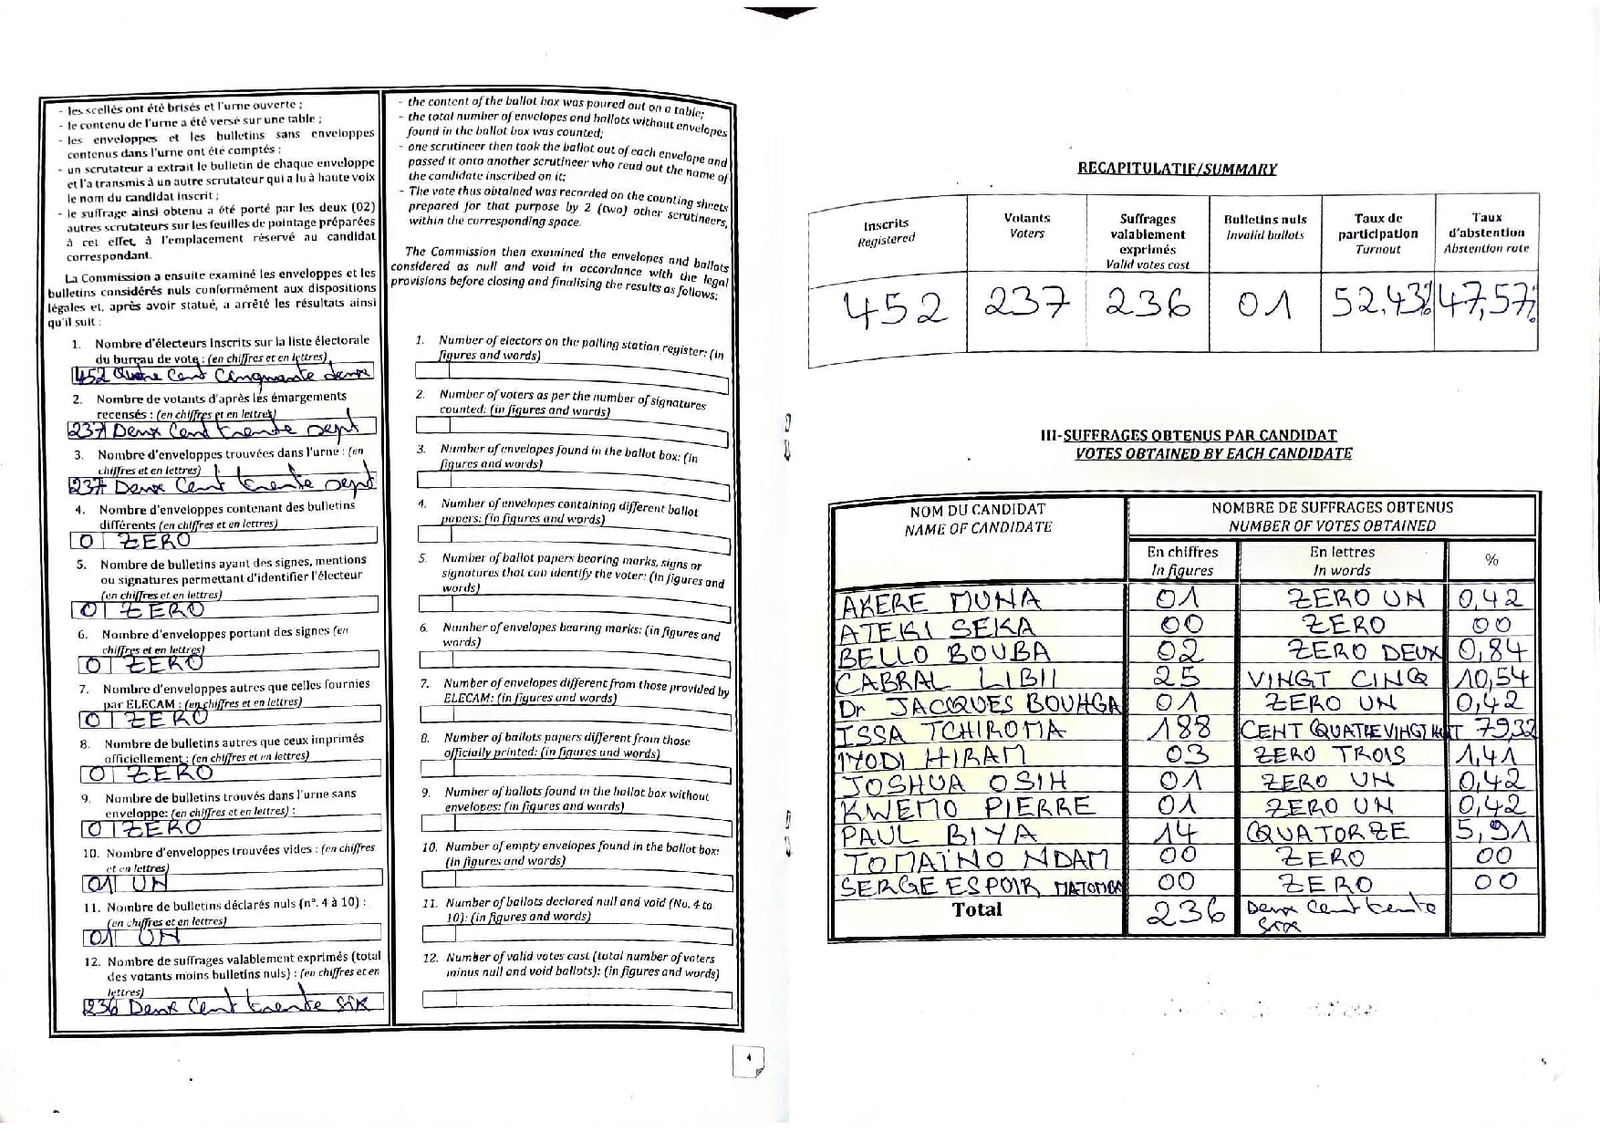 - les scellés ont été brisés et l'urne ouverte ;
- le contenu de l'urne a été versé sur une table ;
- les enveloppes et les bulletins sans enveloppes
contenus dans l'urne ont été comptés ;
- un scrutateur a extrait le bulletin de chaque enveloppe
et l'a transmis à un autre scrutateur qui a lu à haute voix
le nom du candidat inscrit ;
- le suffrage ainsi obtenu a été porté par les deux (02)
autres scrutateurs sur les feuilles de pointage préparées
à cet effet, à l'emplacement réservé au candidat
correspondant.
La Commission a ensuite examiné les enveloppes et les
bulletins considérés nuls conformément aux dispositions
légales et, après avoir statué, a arrêté les résultats ainsi
qu'il suit :
1. Nombre d'électeurs inscrits sur la liste électorale
du bureau de vote : (en chiffres et en lettres)
452 Quatre Cent Cinquante deux
2. Nombre de votants d'après les émargements
recensés : (en chiffres et en lettres)
237 Deux Cent trente sept
3. Nombre d'enveloppes trouvées dans l'urne : (en
chiffres et en lettres)
237 Deux Cent trente sept
4. Nombre d'enveloppes contenant des bulletins
différents (en chiffres et en lettres)
0 ZERO
5. Nombre de bulletins ayant des signes, mentions
ou signatures permettant d'identifier l'électeur
(en chiffres et en lettres)
0 ZERO
6. Nombre d'enveloppes portant des signes (en
chiffres et en lettres)
0 ZERO
7. Nombre d'enveloppes autres que celles fournies
par ELECAM : (en chiffres et en lettres)
0 ZERO
8. Nombre de bulletins autres que ceux imprimés
officiellement : (en chiffres et en lettres)
0 ZERO
9. Nombre de bulletins trouvés dans l'urne sans
enveloppe: (en chiffres et en lettres) :
0 ZERO
10. Nombre d'enveloppes trouvées vides : (en chiffres
et en lettres)
01 UN
11. Nombre de bulletins déclarés nuls (n°. 4 à 10) :
(en chiffres et en lettres)
01 UN
12. Nombre de suffrages valablement exprimés (total
des votants moins bulletins nuls) : (en chiffres et en
lettres)
236 Deux Cent trente six
- the content of the ballot box was poured out on a table;
- the total number of envelopes and ballots without envelopes
found in the ballot box was counted;
- one scrutineer then took the ballot out of each envelope and
passed it onto another scrutineer who read out the name of
the candidate inscribed on it;
- The vote thus obtained was recorded on the counting sheets
prepared for that purpose by 2 (two) other scrutineers,
within the corresponding space.
The Commission then examined the envelopes and ballots
considered as null and void in accordance with the legal
provisions before closing and finalising the results as follows;
1. Number of electors on the polling station register: (in
figures and words)
2. Number of voters as per the number of signatures
counted: (in figures and words)
3. Number of envelopes found in the ballot box: (in
figures and words)
4. Number of envelopes containing different ballot
papers: (in figures and words)
5. Number of ballot papers bearing marks, signs or
signatures that can identify the voter: (in figures and
words)
6. Number of envelopes bearing marks: (in figures and
words)
7. Number of envelopes different from those provided by
ELECAM: (in figures and words)
8. Number of ballots papers different from those
officially printed: (in figures and words)
9. Number of ballots found in the ballot box without
envelopes: (in figures and words)
10. Number of empty envelopes found in the ballot box:
(in figures and words)
11. Number of ballots declared null and void (No. 4 to
10): (in figures and words)
12. Number of valid votes cast (total number of voters
minus null and void ballots): (in figures and words)
4
RECAPITULATIF/SUMMARY
Inscrits Registered | Votants Voters | Suffrages valablement exprimés Valid votes cast | Bulletins nuls Invalid ballots | Taux de participation Turnout | Taux d'abstention Abstention rate
452 237 236 01 52,43% 47,57%
III-SUFFRAGES OBTENUS PAR CANDIDAT
VOTES OBTAINED BY EACH CANDIDATE
NOM DU CANDIDAT NOMBRE DE SUFFRAGES OBTENUS
NAME OF CANDIDATE NUMBER OF VOTES OBTAINED
En chiffres En lettres %
In figures In words
AKERE MUNA 01 ZERO UN 0,42
ATEKI SEKA 00 ZERO 00
BELLO BOUBA 02 ZERO DEUX 0,84
CABRAL LIBII 25 VINGT CINQ 10,54
Dr JACQUES BOUHGA 01 ZERO UN 0,42
ISSA TCHIROMA 188 CENT QUATREVINGT HUIT 79,32
IYODI HIRAM 03 ZERO TROIS 1,41
JOSHUA OSIH 01 ZERO UN 0,42
KWEMO PIERRE 01 ZERO UN 0,42
PAUL BIYA 14 QUATORZE 5,91
TOMAÏNO NDAM 00 ZERO 00
SERGE ESPOIR MATOMBA 00 ZERO 00
Total 236 Deux Cent trente
six
5